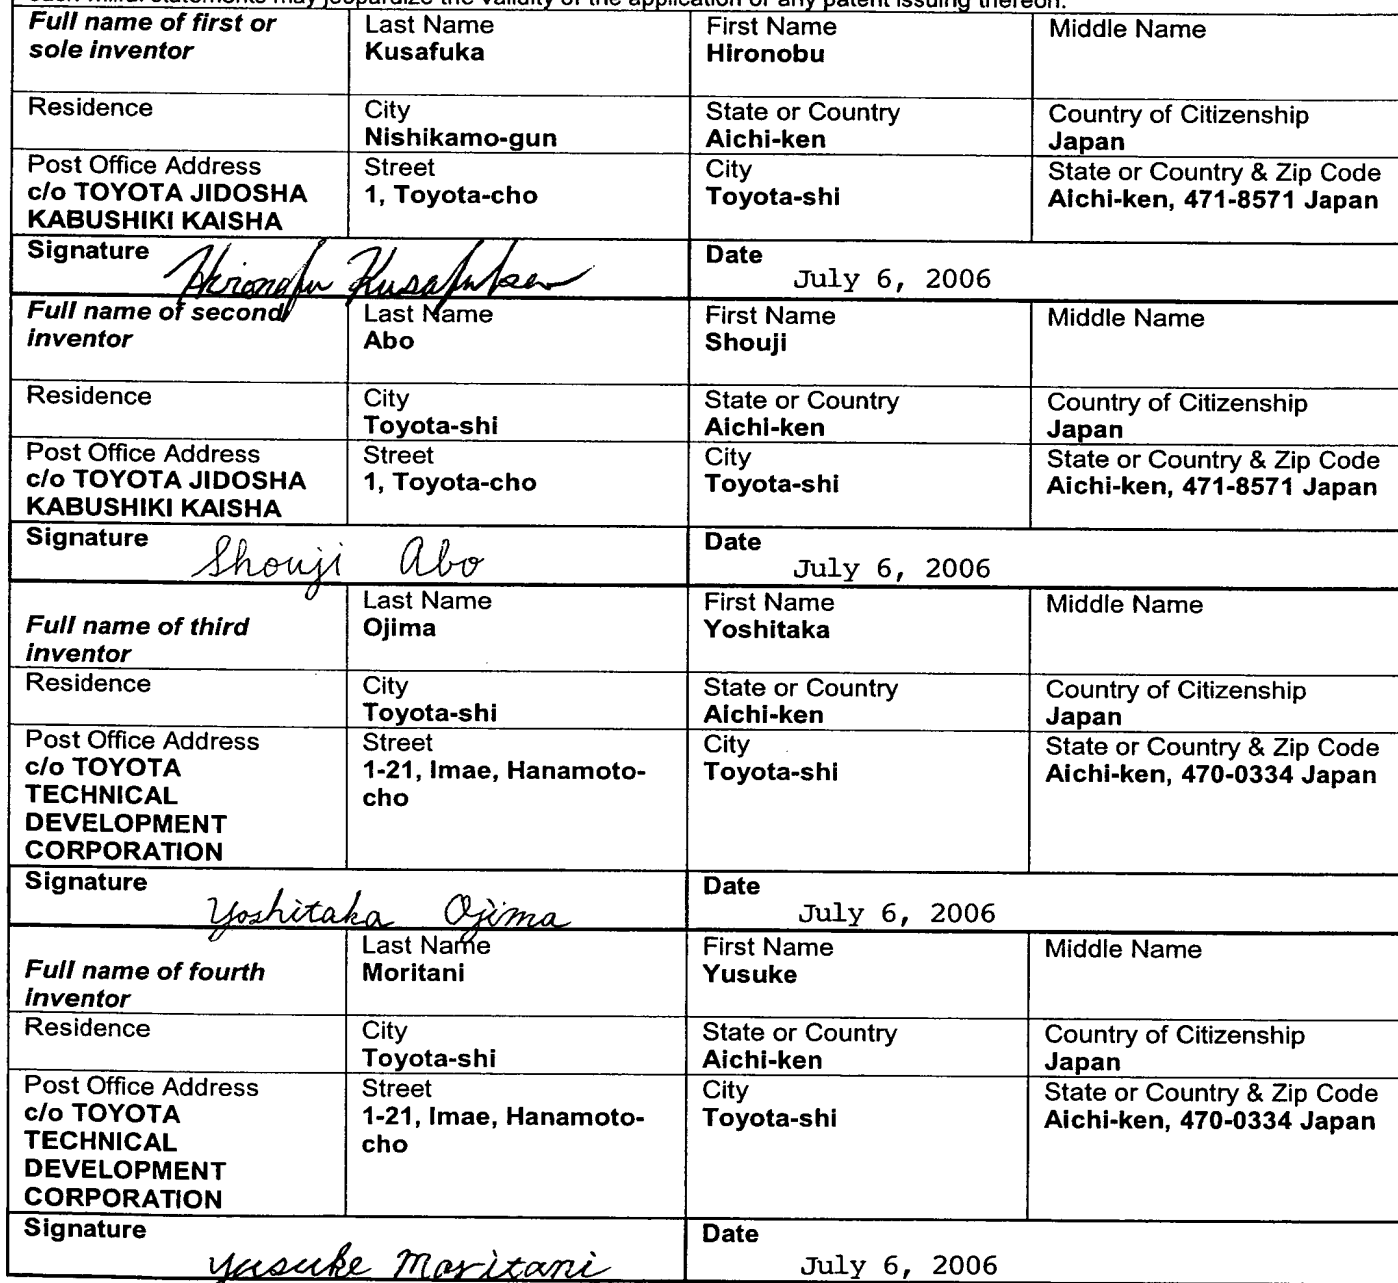 such willful statements may jeopardize the validity of the application or any patent issuing thereon.
Full name of first or
sole inventor
Last Name
Kusafuka
First Name
Hironobu
Middle Name
Residence
City
Nishikamo-gun
State or Country
Aichi-ken
Country of Citizenship
Japan
Post Office Address
c/o TOYOTA JIDOSHA
KABUSHIKI KAISHA
Street
1, Toyota-cho
City
Toyota-shi
State or Country & Zip Code
Aichi-ken, 471-8571 Japan
Signature
Hironobu Kusafuka
Date
July 6, 2006
Full name of second
inventor
Last Name
Abo
First Name
Shouji
Middle Name
Residence
City
Toyota-shi
State or Country
Aichi-ken
Country of Citizenship
Japan
Post Office Address
c/o TOYOTA JIDOSHA
KABUSHIKI KAISHA
Street
1, Toyota-cho
City
Toyota-shi
State or Country & Zip Code
Aichi-ken, 471-8571 Japan
Signature
Shouji Abo
Date
July 6, 2006
Full name of third
inventor
Last Name
Ojima
First Name
Yoshitaka
Middle Name
Residence
City
Toyota-shi
State or Country
Aichi-ken
Country of Citizenship
Japan
Post Office Address
c/o TOYOTA
TECHNICAL
DEVELOPMENT
CORPORATION
Street
1-21, Imae, Hanamoto-
cho
City
Toyota-shi
State or Country & Zip Code
Aichi-ken, 470-0334 Japan
Signature
Yoshitaka Ojima
Date
July 6, 2006
Full name of fourth
inventor
Last Name
Moritani
First Name
Yusuke
Middle Name
Residence
City
Toyota-shi
State or Country
Aichi-ken
Country of Citizenship
Japan
Post Office Address
c/o TOYOTA
TECHNICAL
DEVELOPMENT
CORPORATION
Street
1-21, Imae, Hanamoto-
cho
City
Toyota-shi
State or Country & Zip Code
Aichi-ken, 470-0334 Japan
Signature
Yusuke Moritani
Date
July 6, 2006